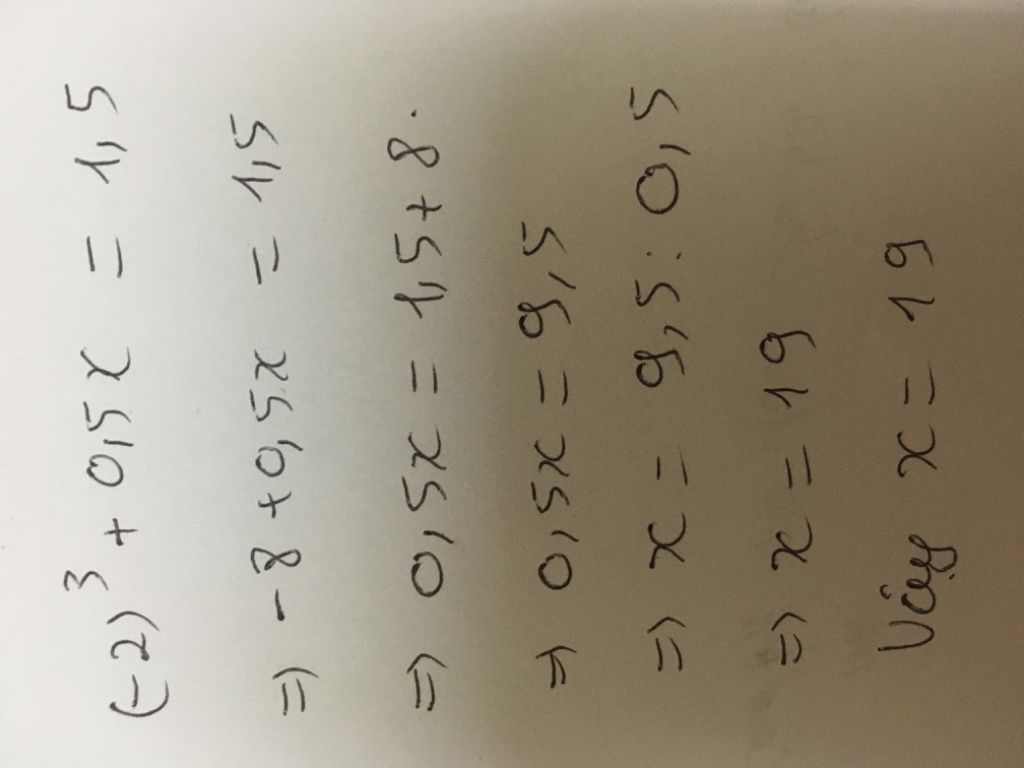 (-2)³ + 0,5x = 1,5
=) -8 + 0,5x = 1,5
=) 0,5x = 1,5 + 8.
=) 0,5x = 9,5
=) x = 9,5 : 0,5
=) x = 19
Vậy x = 19